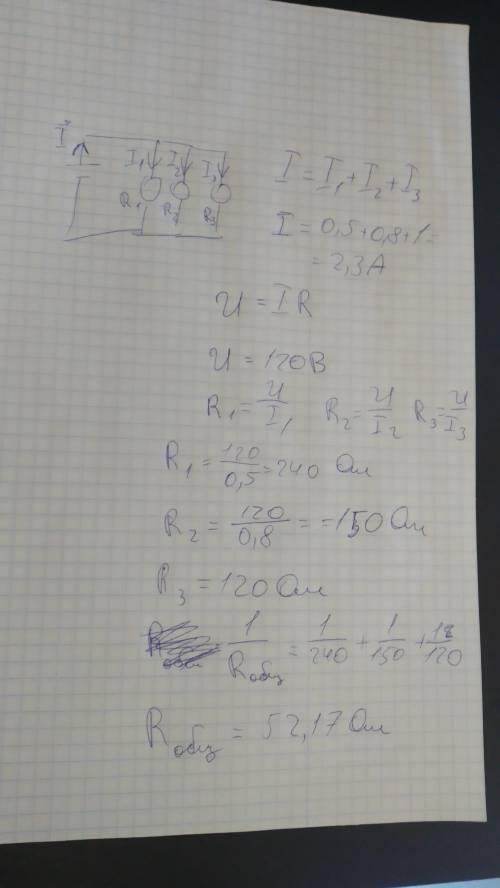 I
I₁ I₂ I₃
R₁ R₂ R₃
I = I₁ + I₂ + I₃
I = 0,5+0,8+1=
= 2,3 А
U = IR
U = 120В
R₁ = U/I₁ R₂ = U/I₂ R₃ = U/I₃
R₁ = 120/0,5 = 240 Ом
R₂ = 120/0,8 = = 150 Ом
R₃ = 120 Ом
1/Rобщ = 1/240 + 1/150 + 1/120
Rобщ = 52,17 Ом